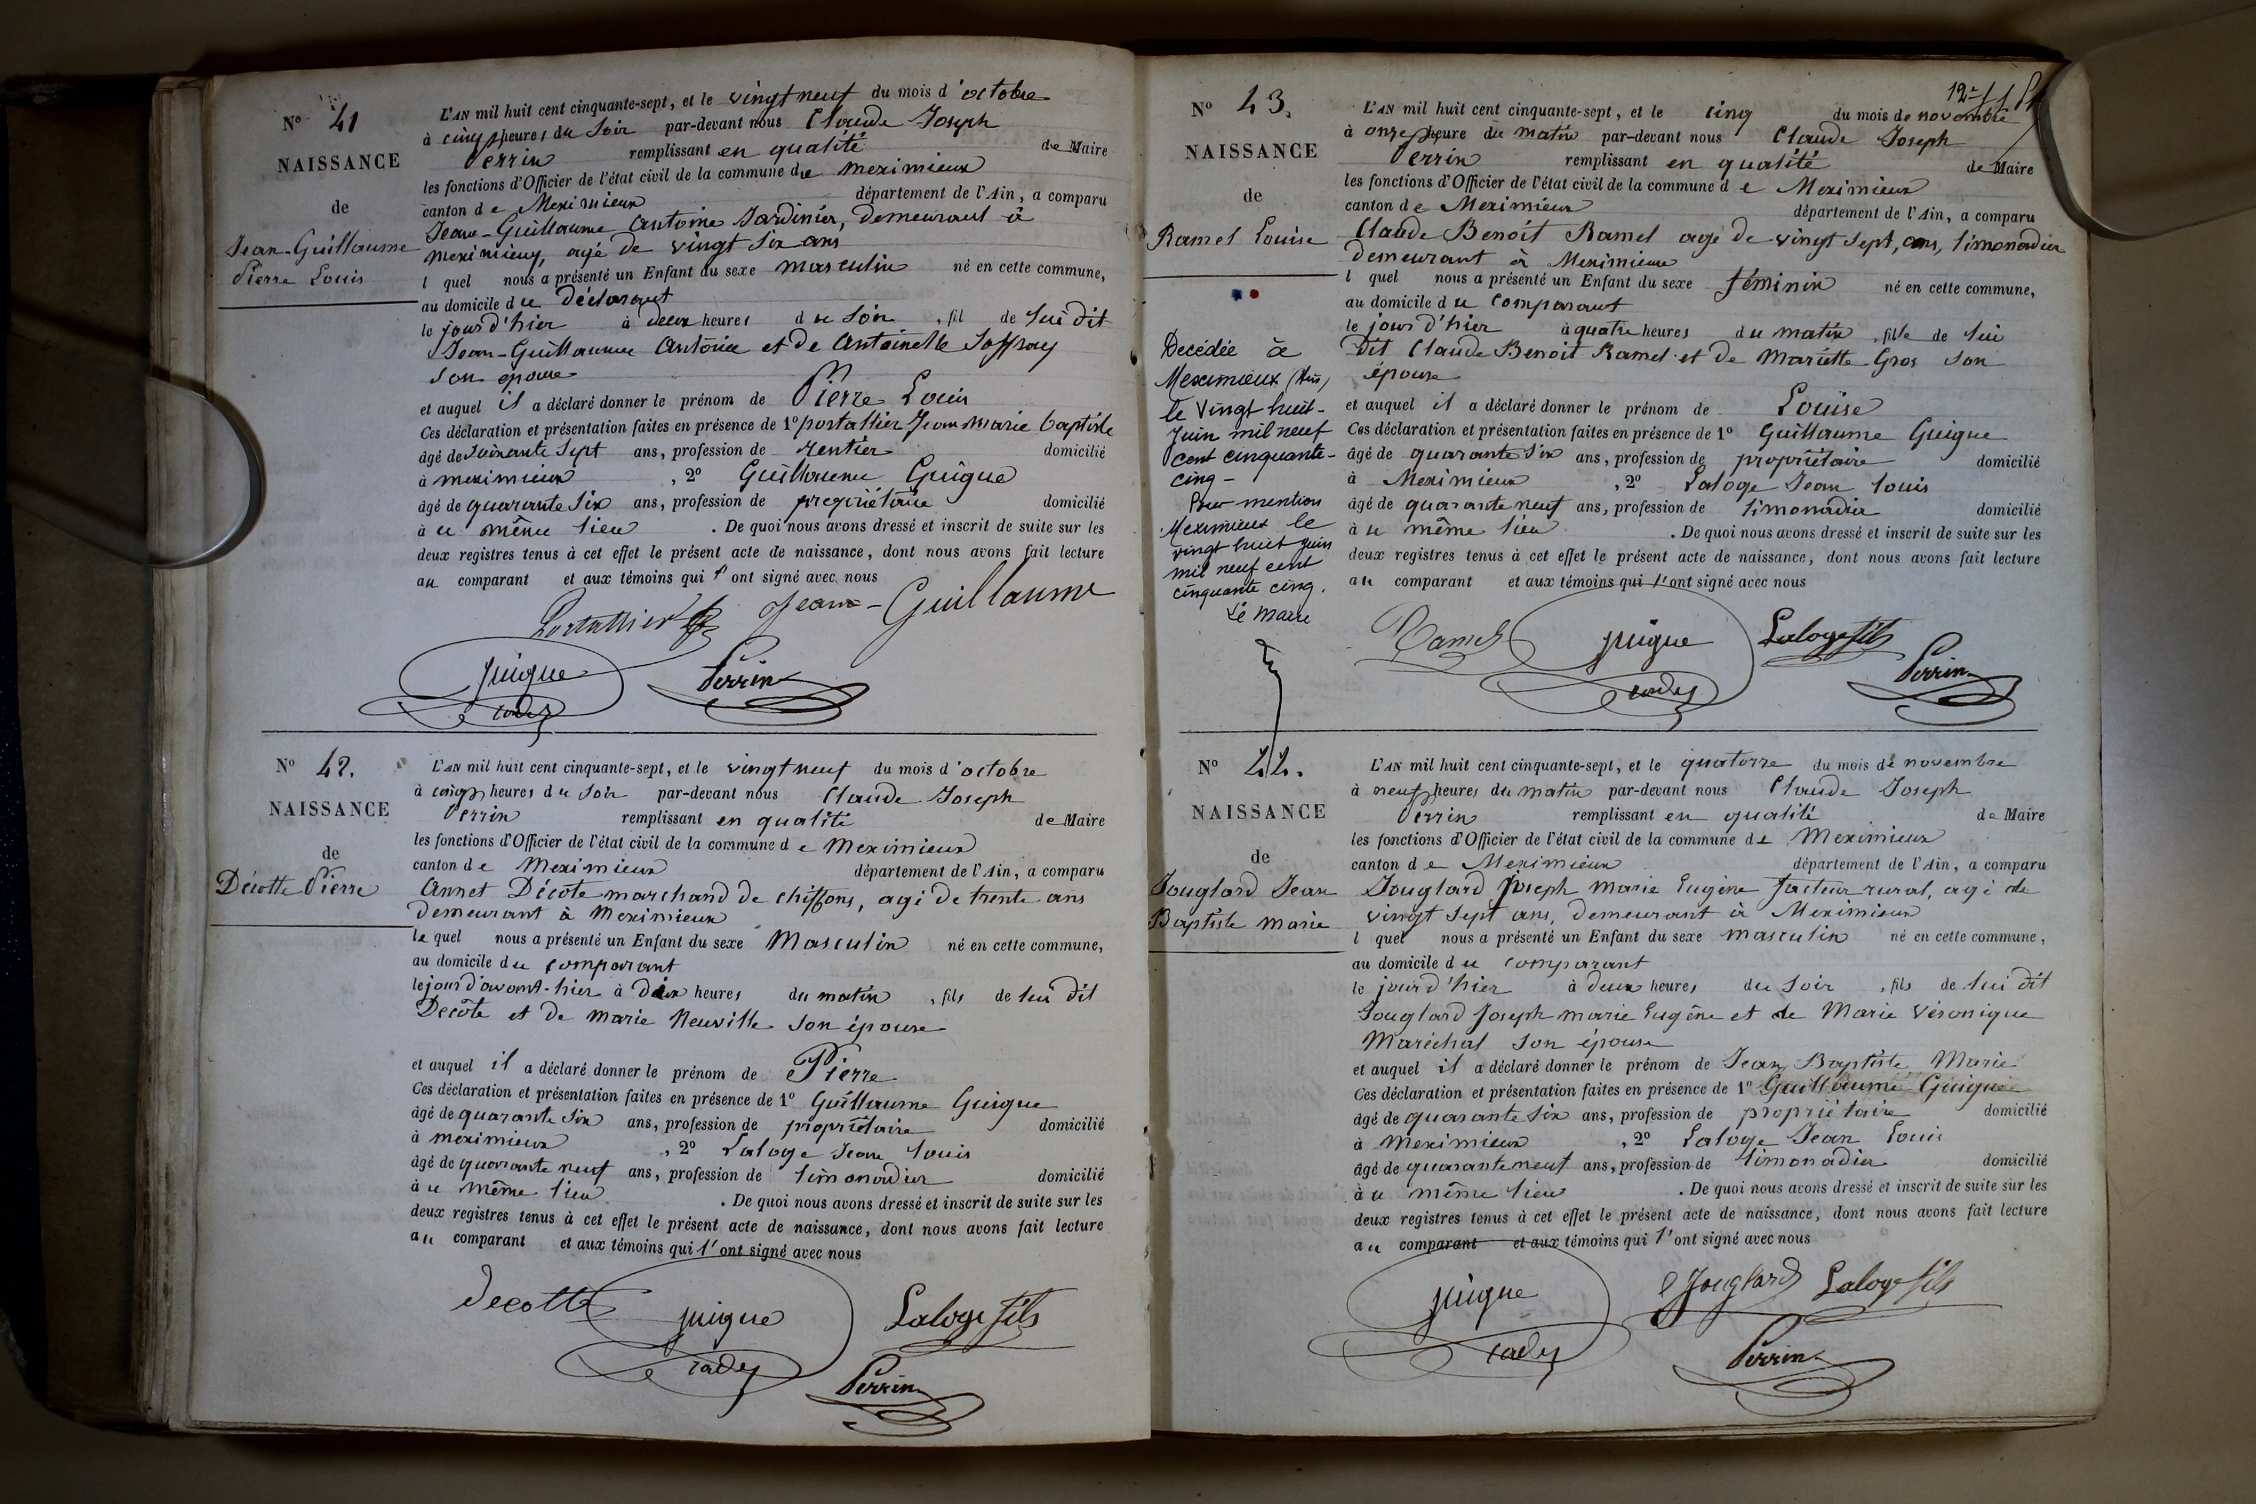 N° 41
NAISSANCE
de
Jean-Guillaume
Pierre Louis
L'AN mil huit cent cinquante-sept, et le vingt neuf du mois d'octobre
à cinq heures du soir par-devant nous Claude Joseph
Perrin remplissant en qualité de Maire
les fonctions d'Officier de l'état civil de la commune de meximieux
canton de Meximieux département de l'Ain, a comparu
Jean-Guillaume Antoine Jardinier, demeurant à
meximieux, agé de vingt six ans
l quel nous a présenté un Enfant du sexe masculin né en cette commune,
au domicile du déclarant
le jour d'hier à deux heures du soir, fil de lui dit
Jean-Guillaume Antoine et de Antoinette Joffray
son épouse
et auquel il a déclaré donner le prénom de Pierre Louis
Ces déclaration et présentation faites en présence de 1° portallier Jean marie baptiste
âgé de soixante sept ans, profession de rentier domicilié
à meximieux, 2° Guillaume Guigue
âgé de quarante six ans, profession de propriétaire domicilié
à ce même lieu. De quoi nous avons dressé et inscrit de suite sur les
deux registres tenus à cet effet le présent acte de naissance, dont nous avons fait lecture
au comparant et aux témoins qui l'ont signé avec nous
Portallier Jean-Guillaume
guigue Perrin
cadet
N° 42.
NAISSANCE
de
Décotte Pierre
L'AN mil huit cent cinquante-sept, et le vingt neuf du mois d'octobre
à cinq heures du soir par-devant nous Claude Joseph
Perrin remplissant en qualité de Maire
les fonctions d'Officier de l'état civil de la commune de Meximieux
canton de Meximieux département de l'Ain, a comparu
Annet Décôte marchand de chiffons, agé de trente ans
demeurant à Meximieux
le quel nous a présenté un Enfant du sexe Masculin né en cette commune,
au domicile du comparant
le jour d'avant-hier à deux heures du matin, fils de lui dit
Decôte et de Marie Neuville son épouse
et auquel il a déclaré donner le prénom de Pierre
Ces déclaration et présentation faites en présence de 1° Guillaume Guigue
âgé de quarante six ans, profession de propriétaire domicilié
à meximieux, 2° Laloge Jean Louis
âgé de quarante neuf ans, profession de limonadier domicilié
à ce même lieu. De quoi nous avons dressé et inscrit de suite sur les
deux registres tenus à cet effet le présent acte de naissance, dont nous avons fait lecture
au comparant et aux témoins qui l'ont signé avec nous
decotte guigue Laloge fils
cadet Perrin
12e
N° 43.
NAISSANCE
de
Ramel Louise
Decédée à
Meximieux (Ain)
le Vingt huit-
Juin mil neuf
cent cinquante-
cinq -
Pour mention
Meximieux le
vingt huit juin
mil neuf cent
cinquante cinq.
Le Maire
L'AN mil huit cent cinquante-sept, et le cinq du mois de novembre
à onze heure du matin par-devant nous Claude Joseph
Perrin remplissant en qualité de Maire
les fonctions d'Officier de l'état civil de la commune de Meximieux
canton de Meximieux département de l'Ain, a comparu
Claude Benoit Ramel agé de vingt sept, ans, limonadier
demeurant à Meximieux
l quel nous a présenté un Enfant du sexe féminin né en cette commune,
au domicile du comparant
le jour d'hier à quatre heures du matin, fille de lui
dit Claude Benoit Ramel et de Mariette Gros son
épouse
et auquel il a déclaré donner le prénom de Louise
Ces déclaration et présentation faites en présence de 1° Guillaume Guigue
âgé de quarante six ans, profession de propriétaire domicilié
à Meximieux, 2° Laloge Jean Louis
âgé de quarante neuf ans, profession de limonadier domicilié
à ce même lieu. De quoi nous avons dressé et inscrit de suite sur les
deux registres tenus à cet effet le présent acte de naissance, dont nous avons fait lecture
au comparant et aux témoins qui l'ont signé avec nous
Ramel guigue Laloge fils
cadet Perrin
N° 44.
NAISSANCE
de
Jouglard Jean
Baptiste Marie
L'AN mil huit cent cinquante-sept, et le quatorze du mois de novembre
à neuf heures du matin par-devant nous Claude Joseph
Perrin remplissant en qualité de Maire
les fonctions d'Officier de l'état civil de la commune de Meximieux
canton de Meximieux département de l'Ain, a comparu
Jouglard Joseph Marie Eugène facteur rural, agé de
vingt sept ans, demeurant à Meximieux
l quel nous a présenté un Enfant du sexe masculin né en cette commune,
au domicile du comparant
le jour d'hier à deux heures du soir, fils de lui dit
Jouglard Joseph marie Eugène et de Marie Véronique
Maréchal son épouse
et auquel il a déclaré donner le prénom de Jean Baptiste Marie
Ces déclaration et présentation faites en présence de 1° Guillaume Guigue
âgé de quarante six ans, profession de propriétaire domicilié
à Meximieux, 2° Laloge Jean Louis
âgé de quarante neuf ans, profession de limonadier domicilié
à ce même lieu. De quoi nous avons dressé et inscrit de suite sur les
deux registres tenus à cet effet le présent acte de naissance, dont nous avons fait lecture
au comparant et aux témoins qui l'ont signé avec nous
guigue Jouglard Laloge fils
cadet Perrin